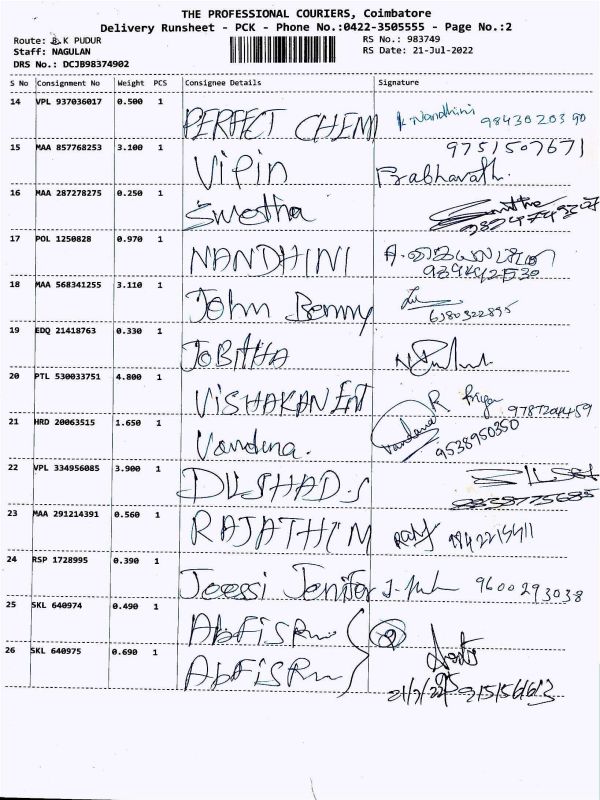 THE PROFESSIONAL COURIERS, Coimbatore
Delivery Runsheet - PCK - Phone No.:0422-3505555 - Page No.:2
Route: B.K PUDUR
RS No.: 983749
Staff: NAGULAN
RS Date: 21-Jul-2022
DRS No.: DCJB98374902
S No Consignment No Weight PCS Consignee Details Signature
14 VPL 937036017 0.500 1 PERFECT CHEM K. Nandhini 9843020390
15 MAA 857768253 3.100 1 Vipin 9751507671
Prabhavath.
16 MAA 287278275 0.250 1 Swetha
17 POL 1250828 0.970 1 NANDHINI
18 MAA 568341255 3.110 1 John Benny 6380322895
19 EDQ 21418763 0.330 1 JOBITHA
20 PTL 530033751 4.800 1 VISHAKAN Ent R Priya 9787204459
21 HRD 20063515 1.650 1 Vandana. Vandana 9538950350
22 VPL 334956085 3.900 1 DILSHAD.S
23 MAA 291214391 0.560 1 RAJATHI M
24 RSP 1728995 0.390 1 Joessi Jenifer 9600293038
25 SKL 640974 0.490 1
26 SKL 640975 0.690 1
21/7/22